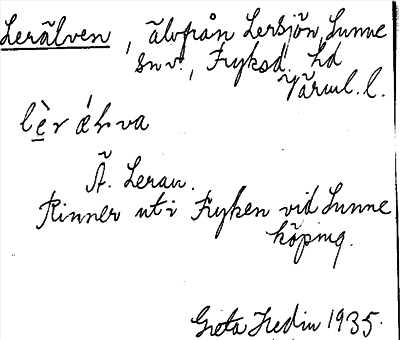 Lerälven, älv från Lersjön, Sunne
snv., Fryksd. hd
Värml. l.
Ä. Leran.
Rinner ut i Fryken vid Sunne
köping.
Greta Hedin 1935.